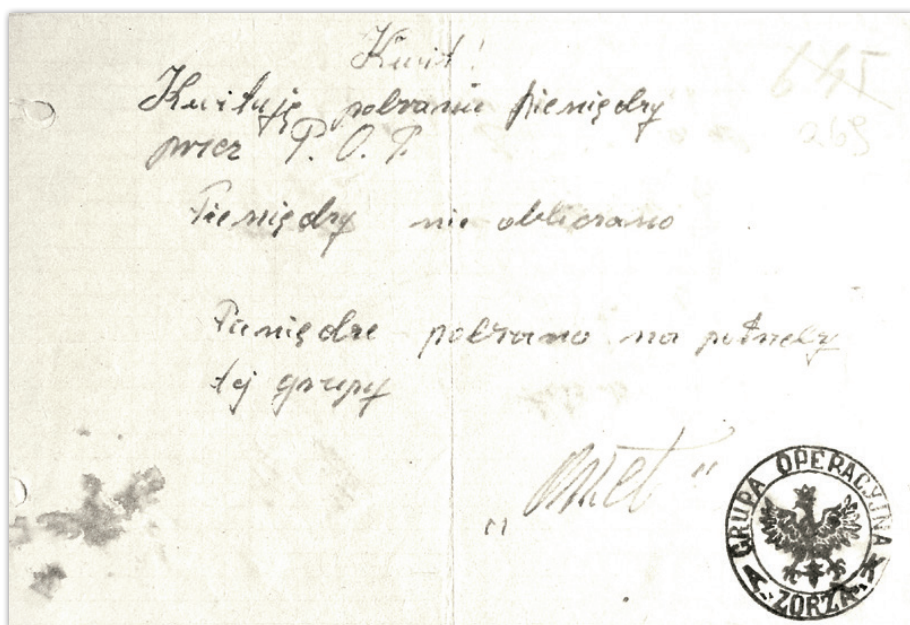 Kwit!
645
269
Kwituję pobranie pieniędzy
przez P. O. P.
Pieniędzy nie obliczano
Pieniądze pobrano na potrzeby
tej grupy
GRUPA OPERACYJNA
"ZORZA"